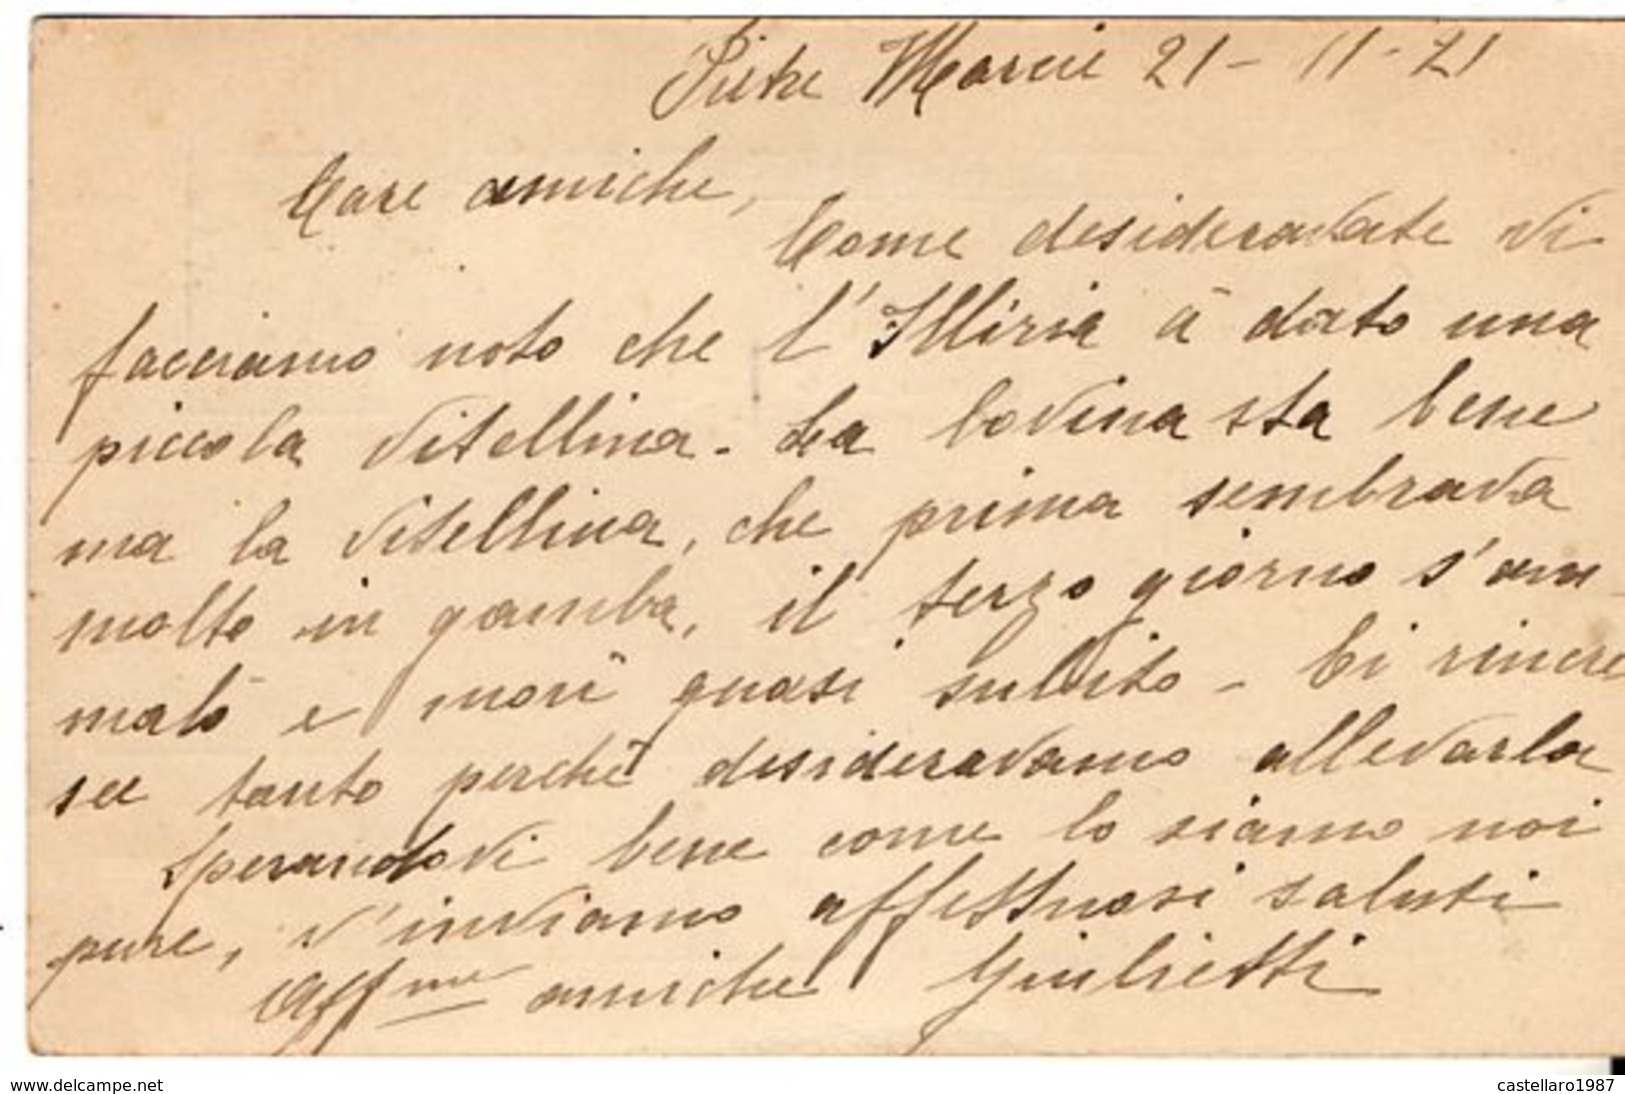 Pieke Marcie 21-11-21
Care amiche,
Come desideravate vi
facciamo noto che l'Illiria à dato una
piccola vitellina. La bovina sta bene
ma la vitellina, che prima sembrava
molto in gamba, il terzo giorno s'am-
malò e morì quasi subito - Ci rincre
sce tanto perchè desideravamo allevarla
Sperandovi bene come lo siamo noi
pure, v'inviamo affettuosi saluti
Aff.me amiche Giulietti
www.delcampe.net
castellaro1987